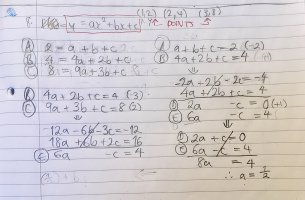 (1,2) (2,4) (3,8)
8. y = ax² + bx + c POINTS
Ⓐ 2 = a + b + c
Ⓑ 4 = 4a + 2b + c
Ⓒ 8 = 9a + 3b + c
Ⓑ 4a + 2b + c = 4 (-3)
Ⓒ 9a + 3b + c = 8 (2)
-12a - 6b - 3c = -12
18a + 6b + 2c = 16
Ⓔ 6a - c = 4
Ⓐ a + b + c = 2 (-2)
Ⓑ 4a + 2b + c = 4
-2a - 2b - 2c = -4
4a + 2b + c = 4
Ⓓ 2a - c = 0
Ⓔ 6a - c = 4
Ⓓ 2a + c = 0
Ⓔ 6a - c = 4
8a = 4
∴ a = 1/2